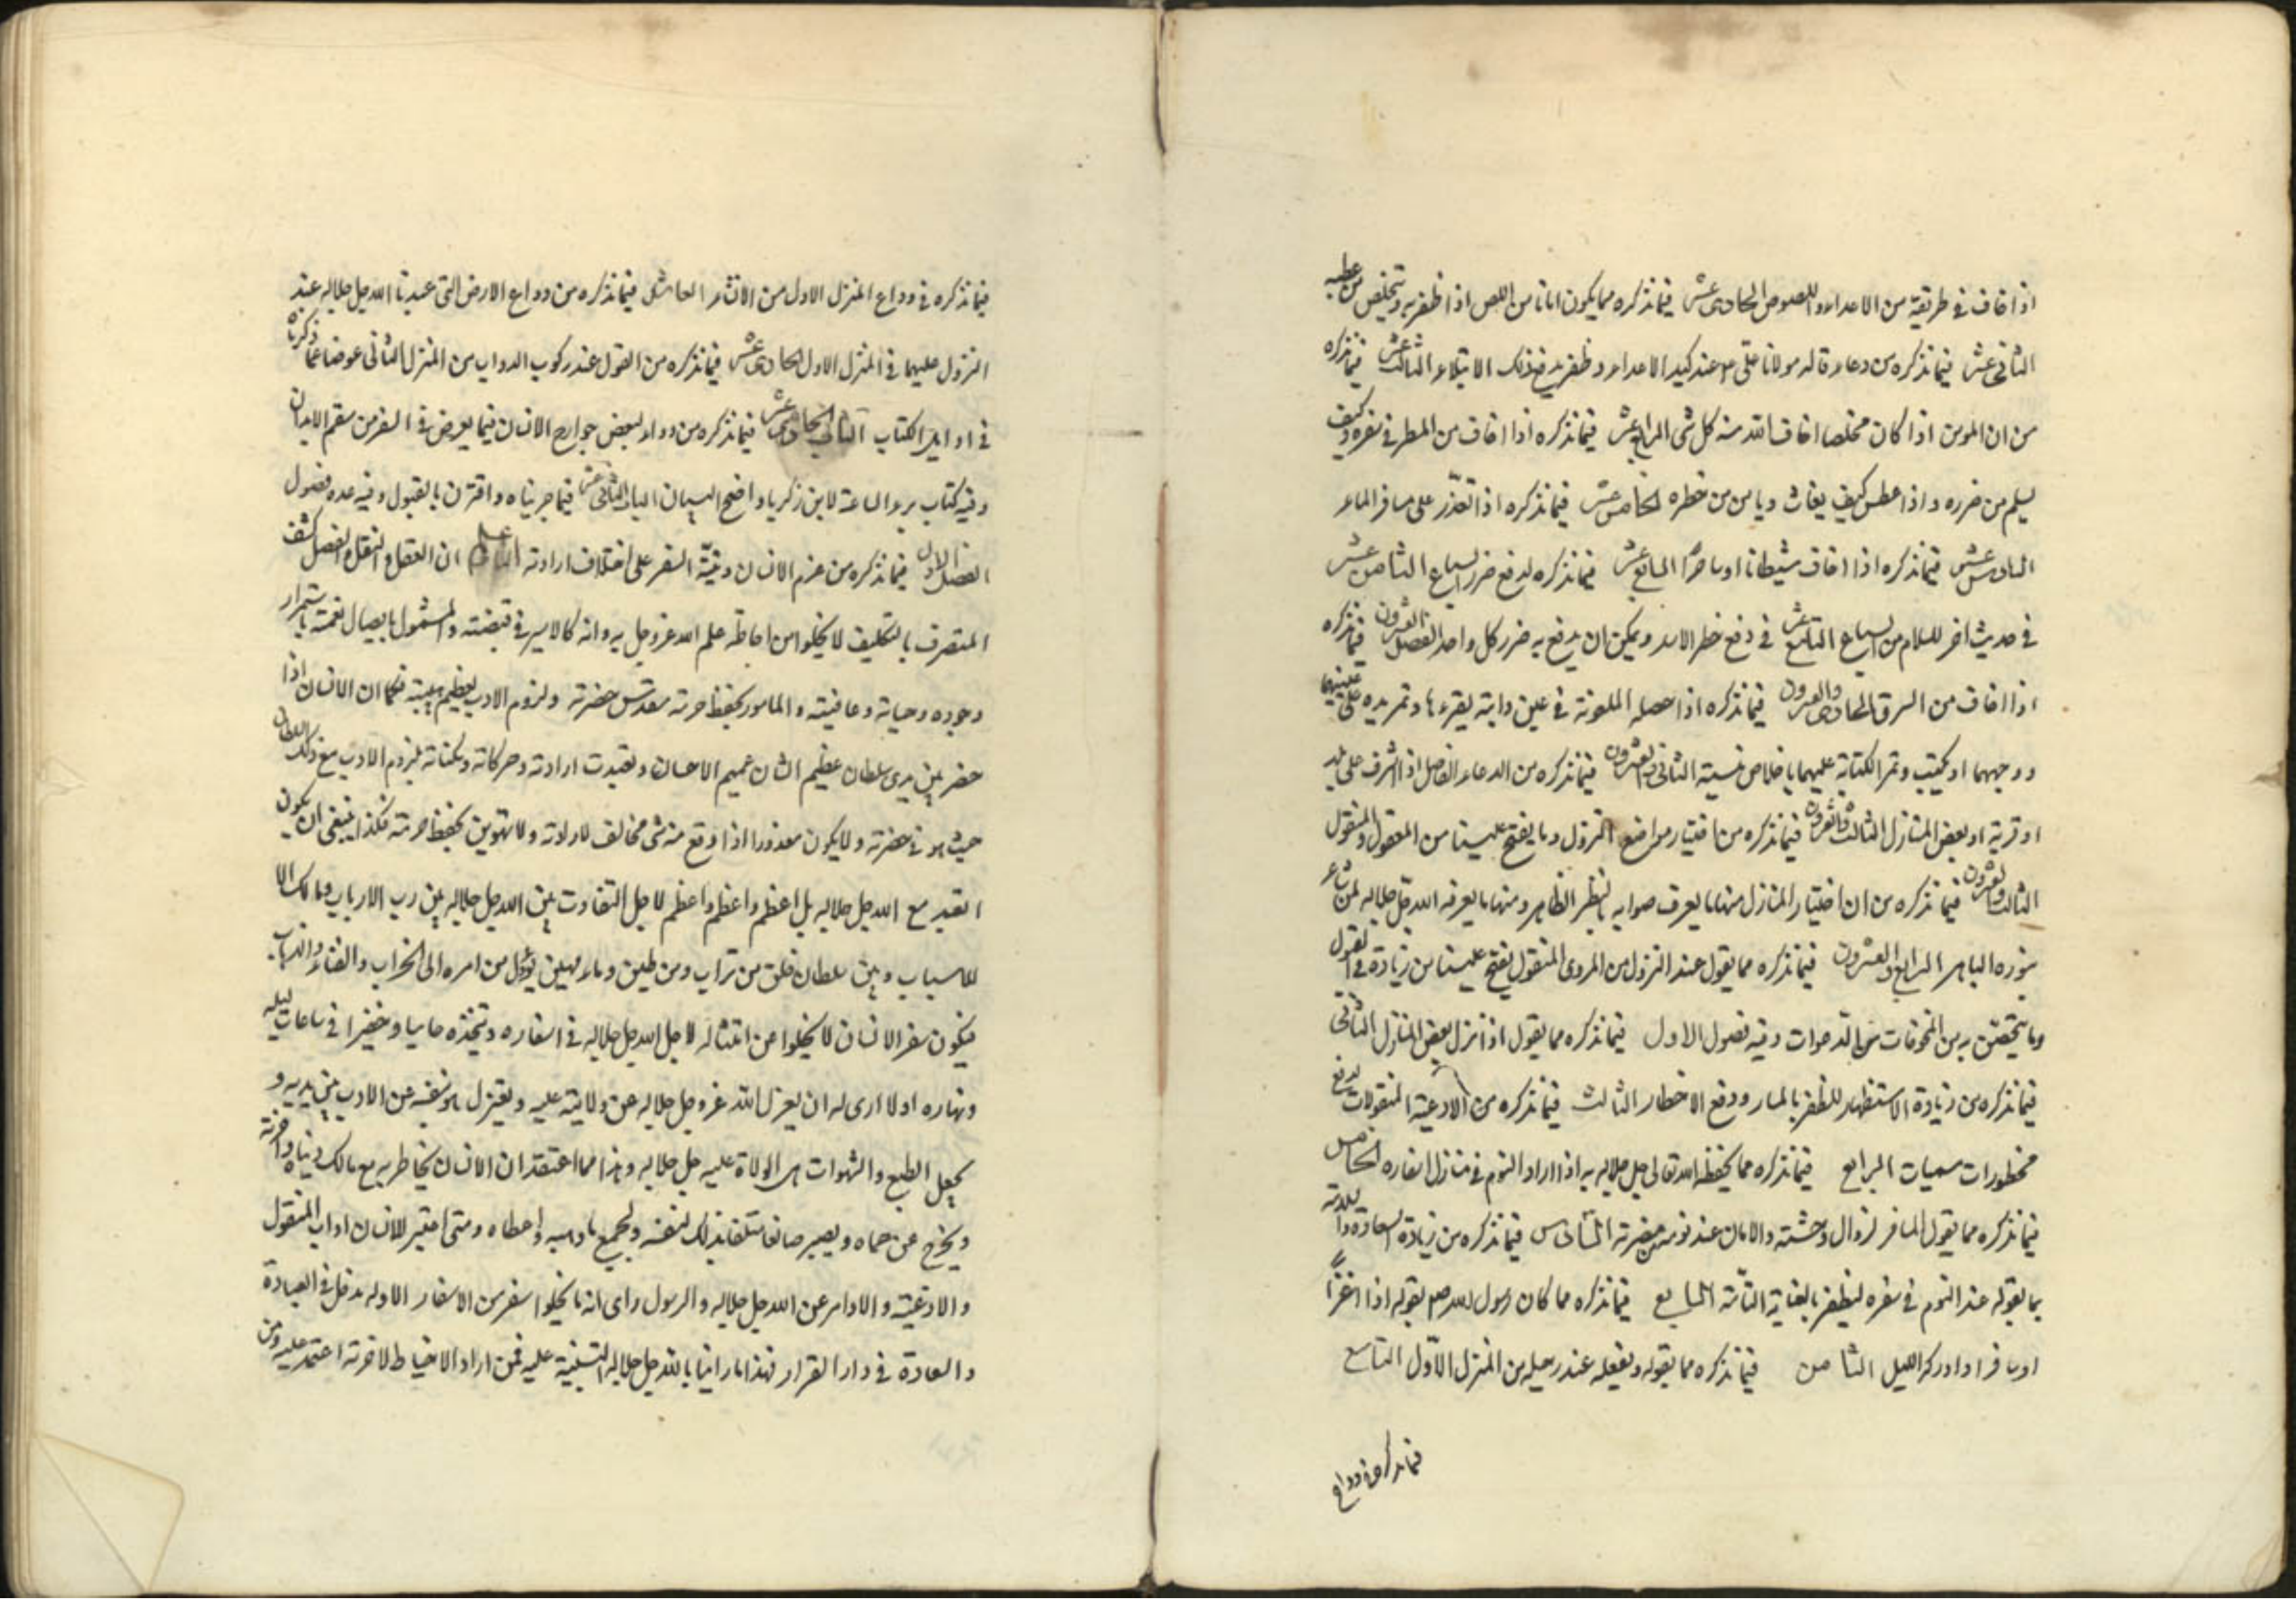 اذا خاف في طريقة من الاعداء واللصوص الحادى عشر فيما نذكره مما يكون امانا من اللص اذا ظفر به ويتخلص من عطبه
الثانى عشر فيما نذكره من دعاء قاله مولانا على ع عند كيد الاعداء وظفر بدفع ذلك الابتلاء الثالث عشر فيما نذكره
من ان المومن اذا كان مخلصا اخاف الله منه كل شى الرابع عشر فيما نذكره اذا خاف من المطر في سفره وكيف
يسلم من ضرره واذا عطش كيف يغاث ويامن من خطره الخامس عشر فيما نذكره اذا تعذر على مسافر الماء
السادس عشر فيما نذكره اذا خاف شيطانا او ساحرا السابع عشر فيما نذكره لدفع ضرر السباع الثامن عشر
في حديث اخر للسلام من السباع التاسع عشر في دفع خطر الاسد ويمكن ان يدفع به ضرر كل واحد الفصل العشرون فيما نذكره
اذا خاف من السرق الحادى والعشرون فيما نذكره اذا حصله الملعونة في عين دابة يقرءها وتمر يده على عينيها
ووجهها او يكتب وتمر الكتابة عليهما باخلاص نيته الثانى والعشرون فيما نذكره من الدعاء الفاضل اذا اشرف على بلد
او قرية او بعض المنازل الثالث والعشرون فيما نذكره من اختيار مواضع النزول وما يفتح علينا من المعقول والمنقول
الثالث والعشرون فيما نذكره من ان اختيار المنازل منها ما يعرف صوابه بالنظر الظاهر ومنها ما يعرفه الله جل جلاله لمن شاء
بنوره الباهر الرابع والعشرون فيما نذكره مما يقول عند النزول من المروى المنقول يفتح علينا من زيادة في القول
وما يتحصن به من المخوفات من الدعوات وفيه فصول الاول فيما نذكره مما يقول اذا نزل ببعض المنازل الثانى
فيما نذكره من زيادة الاستظهار للظفر بالمسار ودفع الاخطار الثالث فيما نذكره من الادعية المنقولات لدفع
محظورات مسميات الرابع فيما نذكره مما يحفظه الله تعالى جل جلاله به اذا اراد النوم في منازل اسفاره الخامس
فيما نذكره مما يقول المسافر لزوال وحشته والامان عند نومه من مضرته السادس فيما نذكره من زيادة السعادة والسلامة
بما يقوله عند النوم في سفره ليظفر بالعناية التامة السابع فيما نذكره مما كان رسول الله صم يقوله اذا غزا
او سافر اذا ادركه الليل الثامن فيما نذكره مما يقوله ويفعله عند رحيله من المنزل الاول التاسع
فيما نذكره في وداع
فيما نذكره في وداع المنزل الاول من الانشاء العاشر فيما نذكره من وداع الارض التى عبدنا الله جل جلاله عند
النزول عليها في المنزل الاول الحادى عشر فيما نذكره من القول عند ركوب الدواب من المنزل الثانى عوضا عما ذكرناه
في اوايل الكتاب الحادى عشر فيما نذكره من دواء لبعض جوارح الانسان فيما يعرض في السفر من سقم الابدان
وفيه كتاب برء الساعة لابن زكريا واضح البيان الباب الثانى عشر فيما جربناه واقترن بالقبول وفيه عدة فصول
الفصل الاول فيما نذكره من عزم الانسان ونية السفر على اختلاف ارادته اعلم ان العقل والنقل والفضل كشف
المتصرف بالتكليف لا يخلوا من احاطة علم الله عز وجل به وانه كالاسير في قبضته والمشمول بايصال نعمته باستمرار
وجوده وحياته وعافيته والمامور بحفظ حرمة مقدس حضرته ولزوم الادب لعظيم هيبته فكما ان الانسان اذا
حضر بين يدى سلطان عظيم الشان عميم الاحسان وتقيدت ارادته وحركاته وسكناته بلزوم الادب مع ذلك السلطان
حيث هو في حضرته ولا يكون معذورا اذا وقع منه شى مخالف لارادته ولا تهوين بحفظ حرمته فكذا ينبغى ان يكون
العبد مع الله جل جلاله بل اعظم واعظم واعظم لاجل التفاوت بين الله جل جلاله بين رب الارباب ومالك الا
للاسباب وبين سلطان خلق من تراب ومن طين وماء مهين يؤول من امره الى الخراب والفناء والذهاب
فيكون سفر الانسان لا يخلوا من امتثاله لاجل الله جل جلاله في اسفاره ويتخذه حاميا وخفيرا في ساعات ليله
ونهاره اولا ارى له ان يعزل الله عز وجل جلاله عن ولايته عليه ويعتزل هو نفسه عن الادب بين يديه و
يجعل الطبع والشهوات هى الولاة عليه جل جلاله وهذا مما اعتقد ان الانسان يخاطر به مع مالك دنياه واخرته
ويخرج عن حماه ويصير ضائعا متلفا بذلك لنفسه ولجميع ما وهبه واعطاه ومتى اعتبر للانسان اداب المنقول
والادعية والاوامر عن الله جل جلاله والرسول راى انه ما يخلوا سفر من الاسفار الا وله مدخل في العبادة
والسعادة في دار القرار فهذا ما راينا بالله جل جلاله التنبيه عليه فمن اراد الاحتياط لاخرته اعتمد عليه ومن